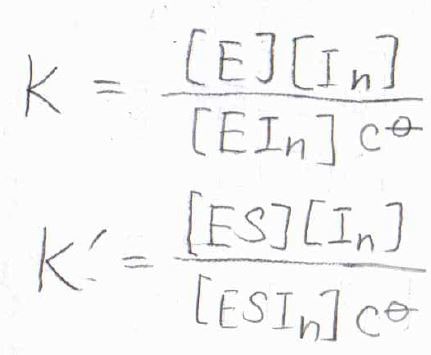 K = [E][In] / [EIn] c⊖
K' = [ES][In] / [ESIn] c⊖